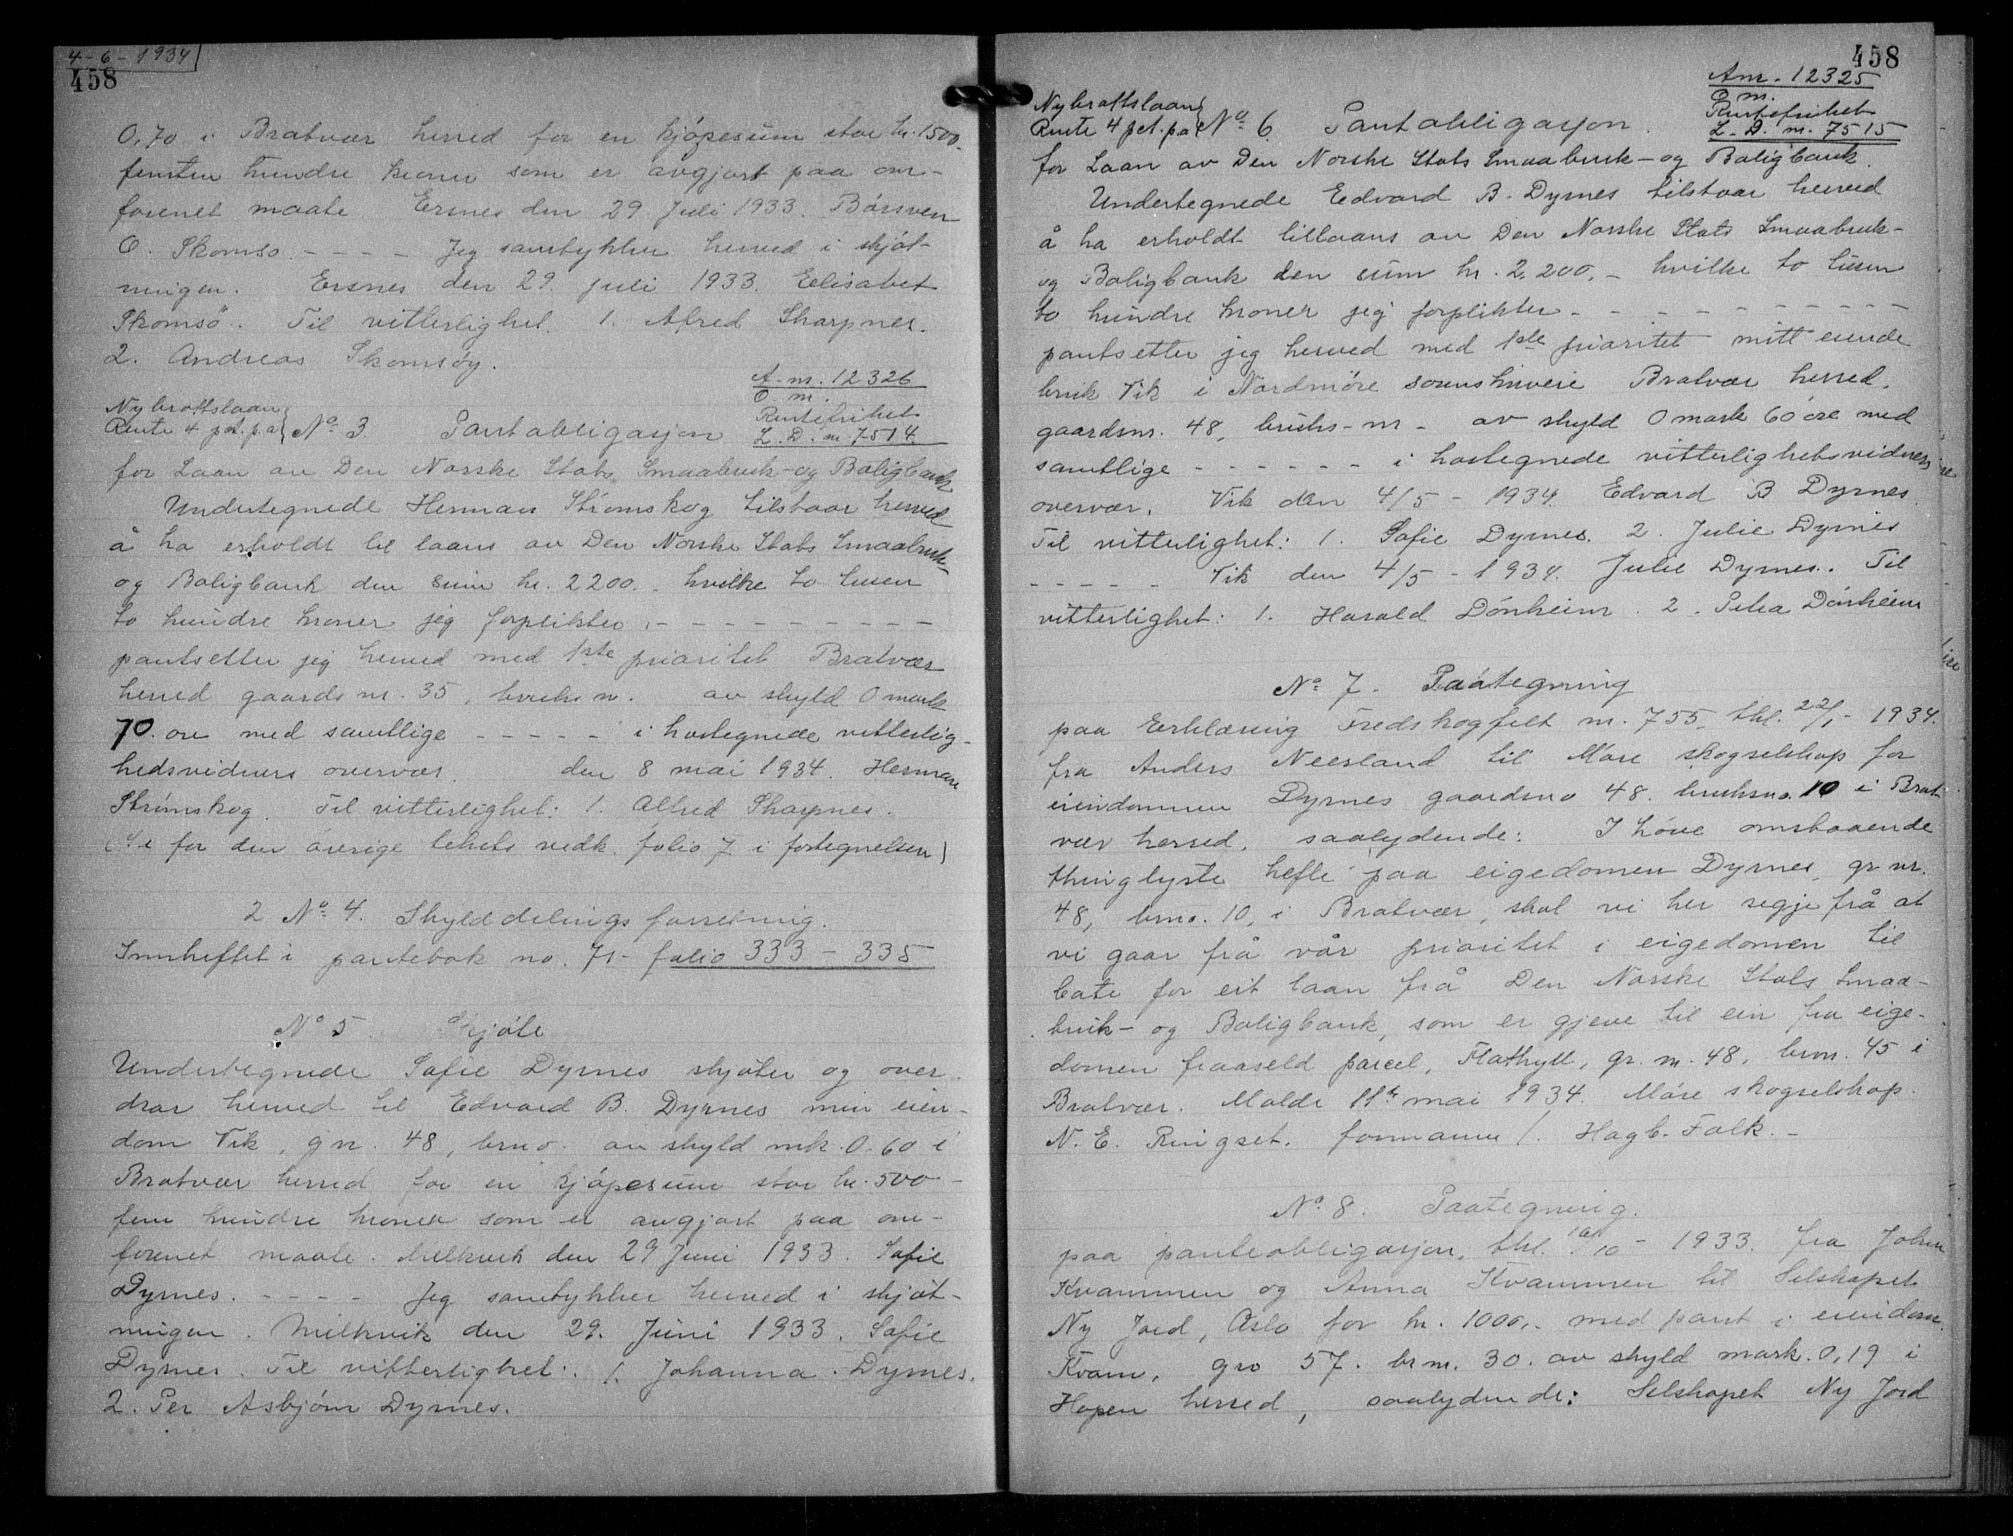 4-6-1934
458
0,70 i Bratvær herred for en kjøpesum stor kr. 1500.
femten hundre kroner som er avgjort paa om-
forenet maate. Ersnes den 29 Juli 1933.
O. Skomsø. - - - - Jeg samtykker herved i skjøt-
ningen. Ersnes den 29. juli 1933. Elisabet
Skomsö. Til vitterlighet. 1. Alfred Skarpnes.
2. Andreas Skomsøy.
A. nr. 12326
O. m.
Rentefrihet
L. D. nr. 7514
Nybrottslaan
Rente 4 pct. p.a.
No 3. Pantobligasjon
for Laan av Den Norske Stats Smaabruk- og Boligbank
Undertegnede Herman Strømskog tilstaar herved
å ha erholdt til laans av Den Norske Stats Smaabruk-
og Boligbank den sum kr. 2200.- hvilke to tusen
to hundre kroner jeg forplikter. - - - - - - - - -
pantsetter jeg herved med 1ste prioritet Bratvær
herred gaards nr. 35, bruks nr. av skyld 0 mark
70 øre med samtlige - - - - - i hostegnede vitterlig-
hedsvidners overvær. den 8 mai 1934. Herman
Strømskog. Til vitterlighet: 1. Alfred Skarpnes.
(Se for den øvrige teksts vedk. folio 7 i fortegnelsen)
2 No 4. Skylddelingsforretning.
Innheftet i pantebok no. 71 - folio 333 - 335
No 5 Skjøte
Undertegnede Safie Dyrnes skjøter og over-
drar herved til Edvard B. Dyrnes min eien-
dom Vik, gn. 48, brno. av skyld mk. 0.60 i
Bratvær herred for en kjøpesum stor kr. 500 -
fem hundre kroner som er avgjort paa om-
forenet maate. Melkvik den 29 Juni 1933. Safie
Dyrnes. - - - - Jeg samtykker herved i skjøt-
ningen. Melkvik den 29. Juni 1933. Safie
Dyrnes. Til vitterlighet: 1. Johanna Dyrnes.
2. Per Asbjørn Dyrnes.
458
Anr. 12325
O m.
Rentefrihet
L. D. nr. 7515
Nybrottslaan
Rente 4 pct. p.a.
No 6 Pantobligasjon.
for Laan av Den Norske Stats Smaabruk- og Boligbank.
Undertegnede Edvard B. Dyrnes tilstaar herved
å ha erholdt tillaans av Den Norske Stats Smaabruk-
og Boligbank den sum kr. 2,200,- hvilke to tusen
to hundre kroner jeg forplikter - - - - - - - - -
pantsetter jeg herved med 1ste prioritet mitt eiende
bruk Vik i Nordmøre sorenskriveri Bratvær herred.
gaardsnr. 48, bruks-nr - av skyld 0 mark 60 øre med
samtlige - - - - - - i hostegnede vitterlighetsvidners
overvær. Vik den 4/5 - 1934. Edvard B Dyrnes
Til vitterlighet: 1. Safie Dyrnes. 2. Julie Dyrnes
- - - - - Vik den 4/5 - 1934. Julie Dyrnes. Til
vitterlighet: 1. Harald Dønheim. 2. Petra Dønheim
No 7. Paategning
paa Erklæring Fredskogfelt nr. 755 thl. 22/1 - 1934.
fra Anders Neerland til Møre skogselskap for
eiendommen Dyrnes gaardsno 48. bruksno. 10 i Brat-
vær herred, saalydende: I høve omstaaende
thinglyste hefte paa eigedomen Dyrnes, gr nr.
48, brno. 10, i Bratvær, skal vi her segje frå at
vi gaar frå vår prioritet i eigedomen til
bate for eit laan frå Den Norske Stats Smaa-
bruk- og Boligbank, som er gjeve til ein fra eige-
domen fraaseld parcel, Flathyll, gr. nr. 48, brnr. 45 i
Bratvær. Molde 11te mai 1934. Møre skogselskap.
N. E. Ringset. formann /. Hagb. Falk. -
No 8. Paategning.
paa panteobligasjon, thl. /10 - 1933. fra Johan
Kvammen og Anna Kvammen til Selskapet
Ny Jord, Oslo for kr. 1000,- med pant i eiendom.
Kvam, gno 57. brnr. 30. av skyld mark. 0,19 i
Hopen herred, saalydende: Selskapet Ny Jord